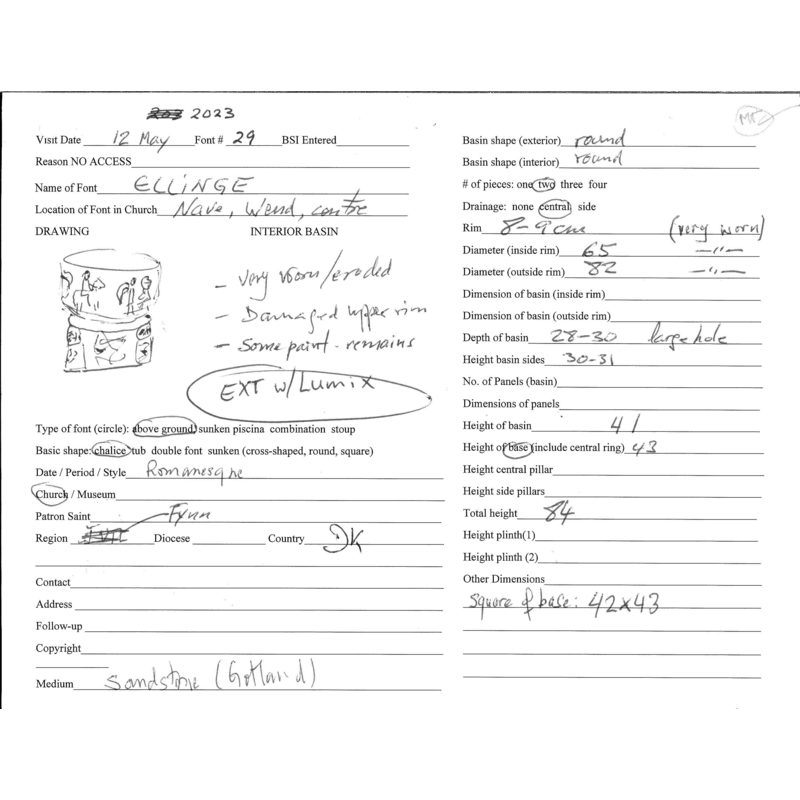 2023
Visit Date 12 May Font # 29 BSI Entered
Reason NO ACCESS
Name of Font ELLiNGE
Location of Font in Church Nave, Wend, centre
DRAWING INTERIOR BASIN
- very worn/eroded
- Damaged upper rim
- Some paint - remains
EXT w/ Lumix
Type of font (circle): above ground sunken piscina combination stoup
Basic shape: chalice tub double font sunken (cross-shaped, round, square)
Date / Period / Style Romanesque
Church / Museum
Patron Saint
Fynn
Region Diocese Country DK
Contact
Address
Follow-up
Copyright
Medium Sandstone (Gotland)
Basin shape (exterior) round
Basin shape (interior) round
# of pieces: one two three four
Drainage: none central side
Rim 8-9cm (very worn)
Diameter (inside rim) 65 —"—
Diameter (outside rim) 82 —"—
Dimension of basin (inside rim)
Dimension of basin (outside rim)
Depth of basin 28-30 large hole
Height basin sides 30-31
No. of Panels (basin)
Dimensions of panels
Height of basin 41
Height of base (include central ring) 43
Height central pillar
Height side pillars
Total height 84
Height plinth(1)
Height plinth (2)
Other Dimensions
Square of base: 42x43